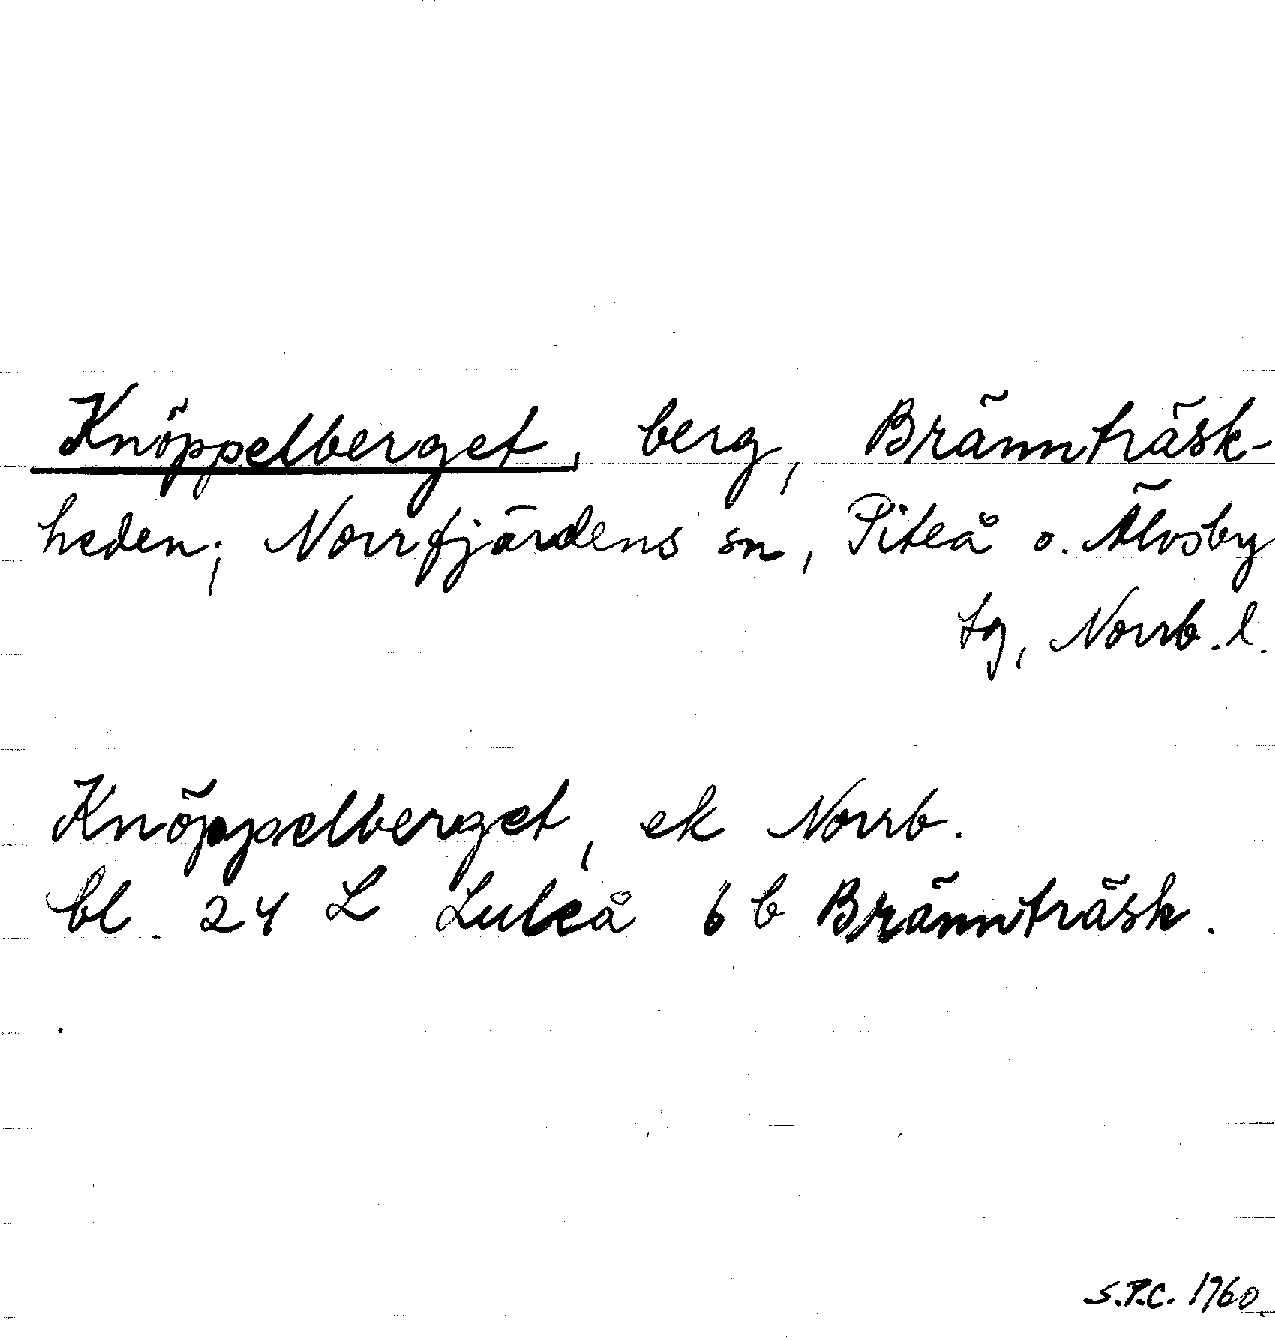 Knöppelberget, berg, Brännträsk-
heden; Norrfjärdens sn, Piteå o. Älvsby
tg, Norrb. l.
Knöppelberget, ek Norrb.
bl. 24 L Luleå 6 b Brännträsk.
S.P.C. 1960